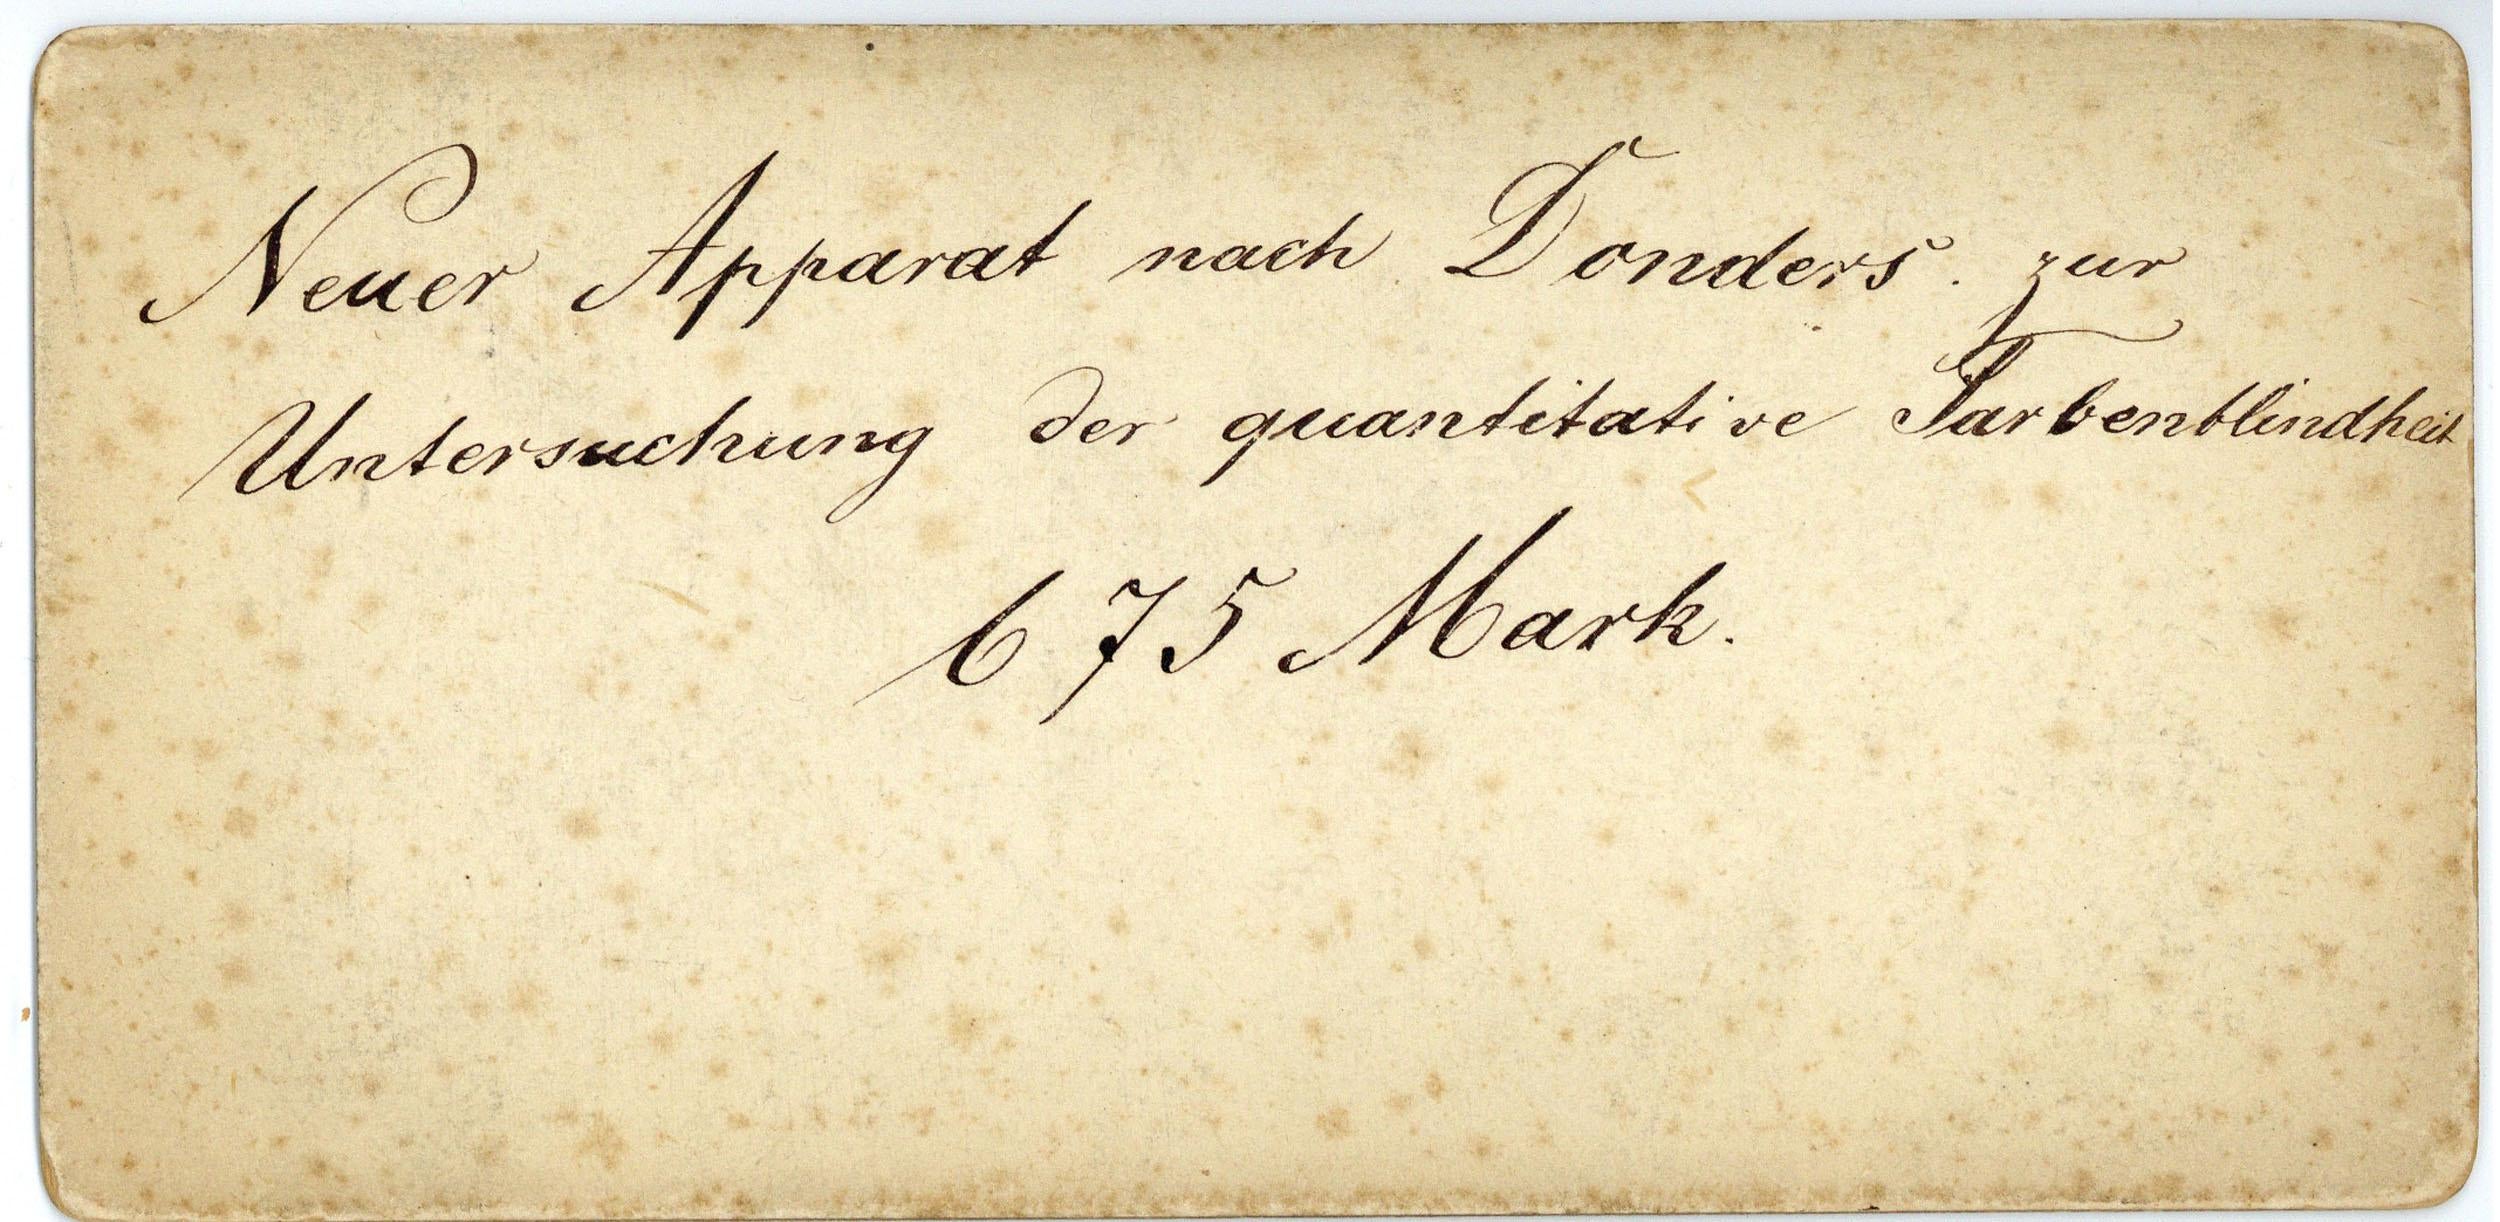 Neuer Apparat nach Donders. zur
Untersuchung der quantitative Farbenblindheit
675 Mark.